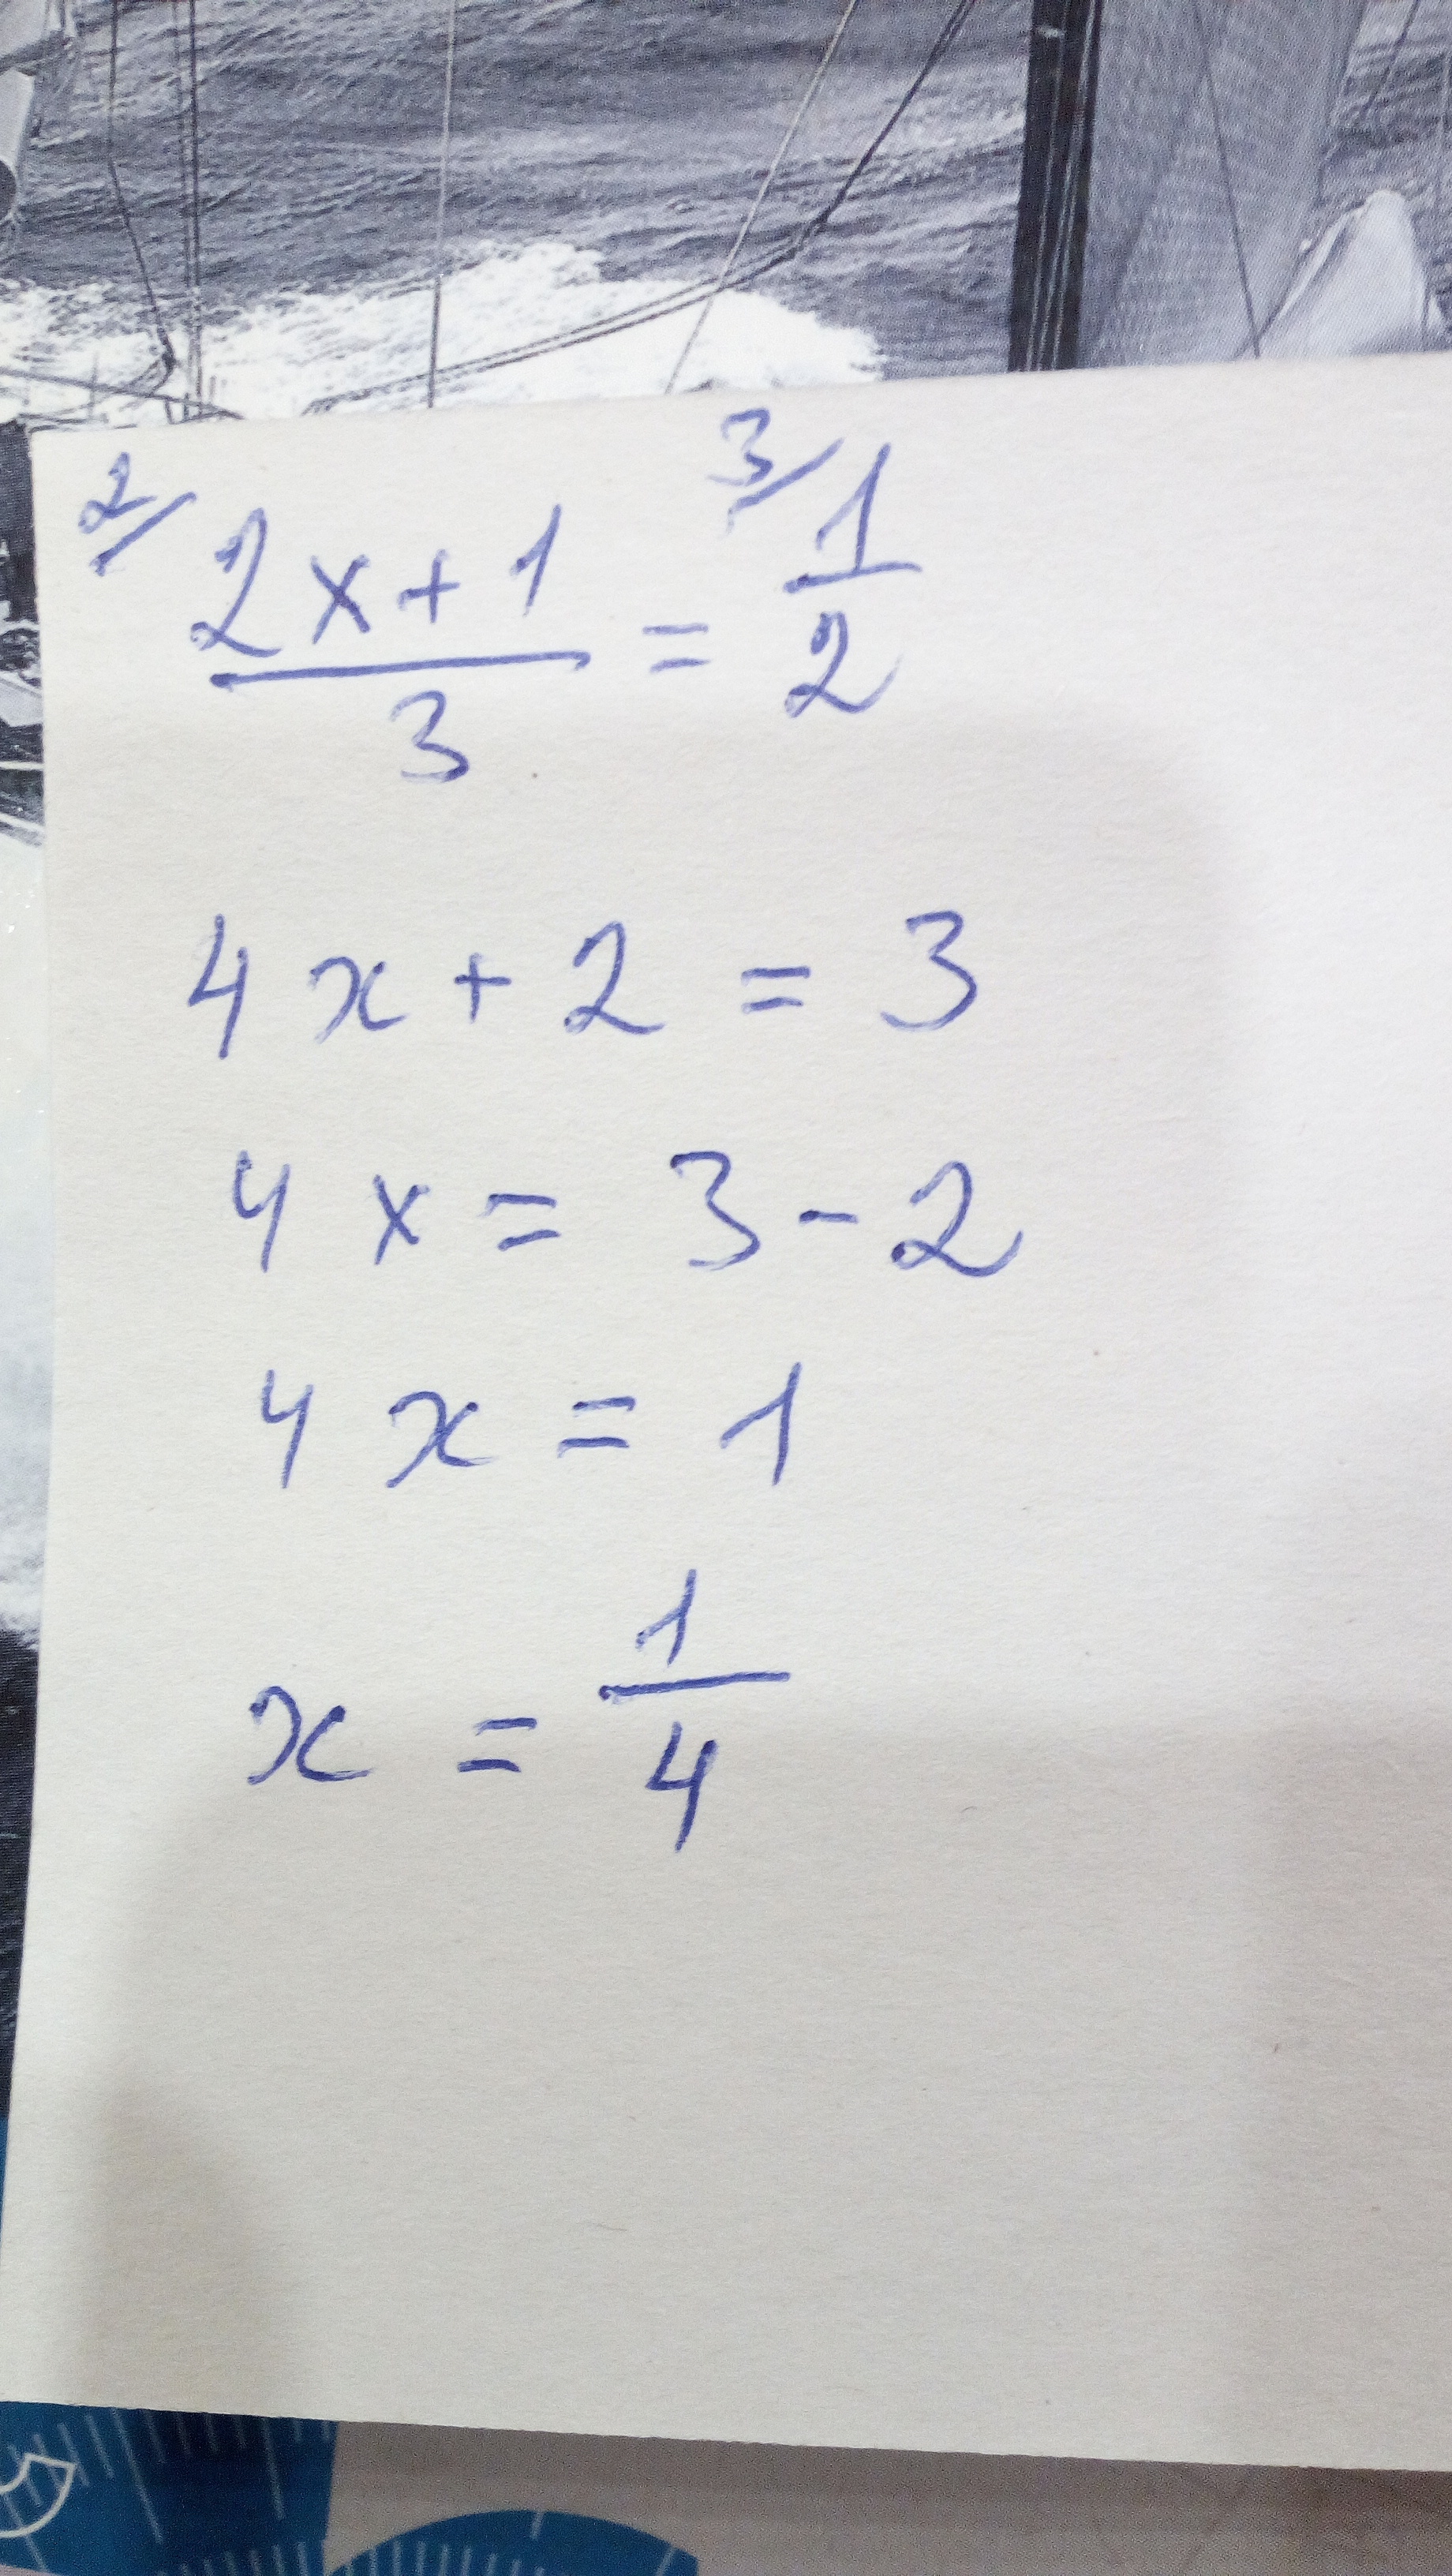 2/ 2x+1/3 = 3/ 1/2
4x+2 = 3
4x = 3-2
4x = 1
x = 1/4